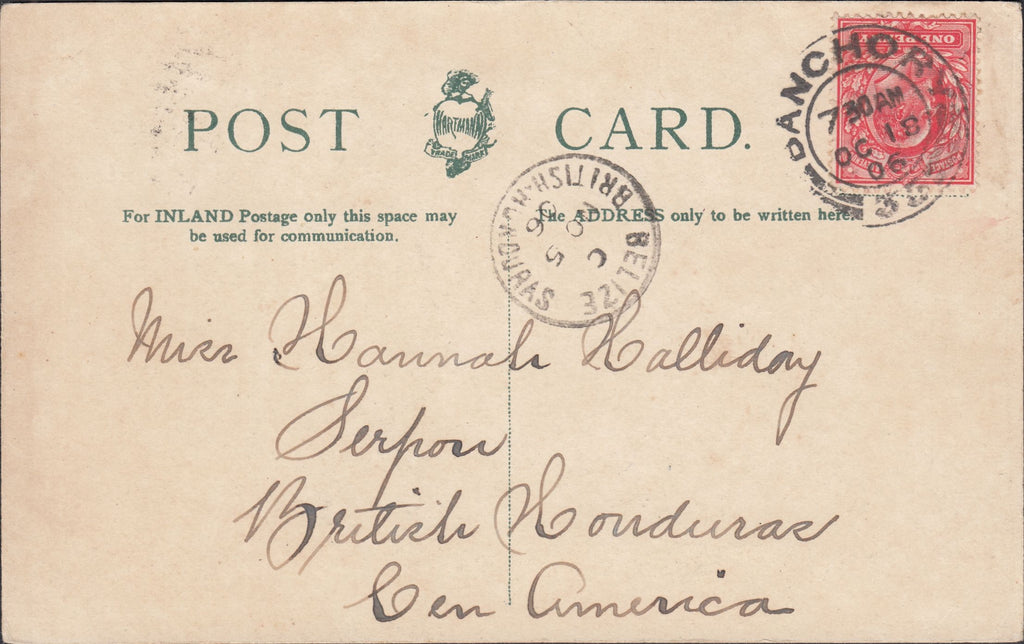 POST CARD.
HARTMANN
TRADE MARK
For INLAND Postage only this space may
be used for communication.
The ADDRESS only to be written here.
BANCHORY
7 30AM
OC 18
06
ONE PENNY
BRITISH·HONDURAS
BELIZE
C
5
06
Miss Hannah Halliday
Serpon
British Honduras
Cen America